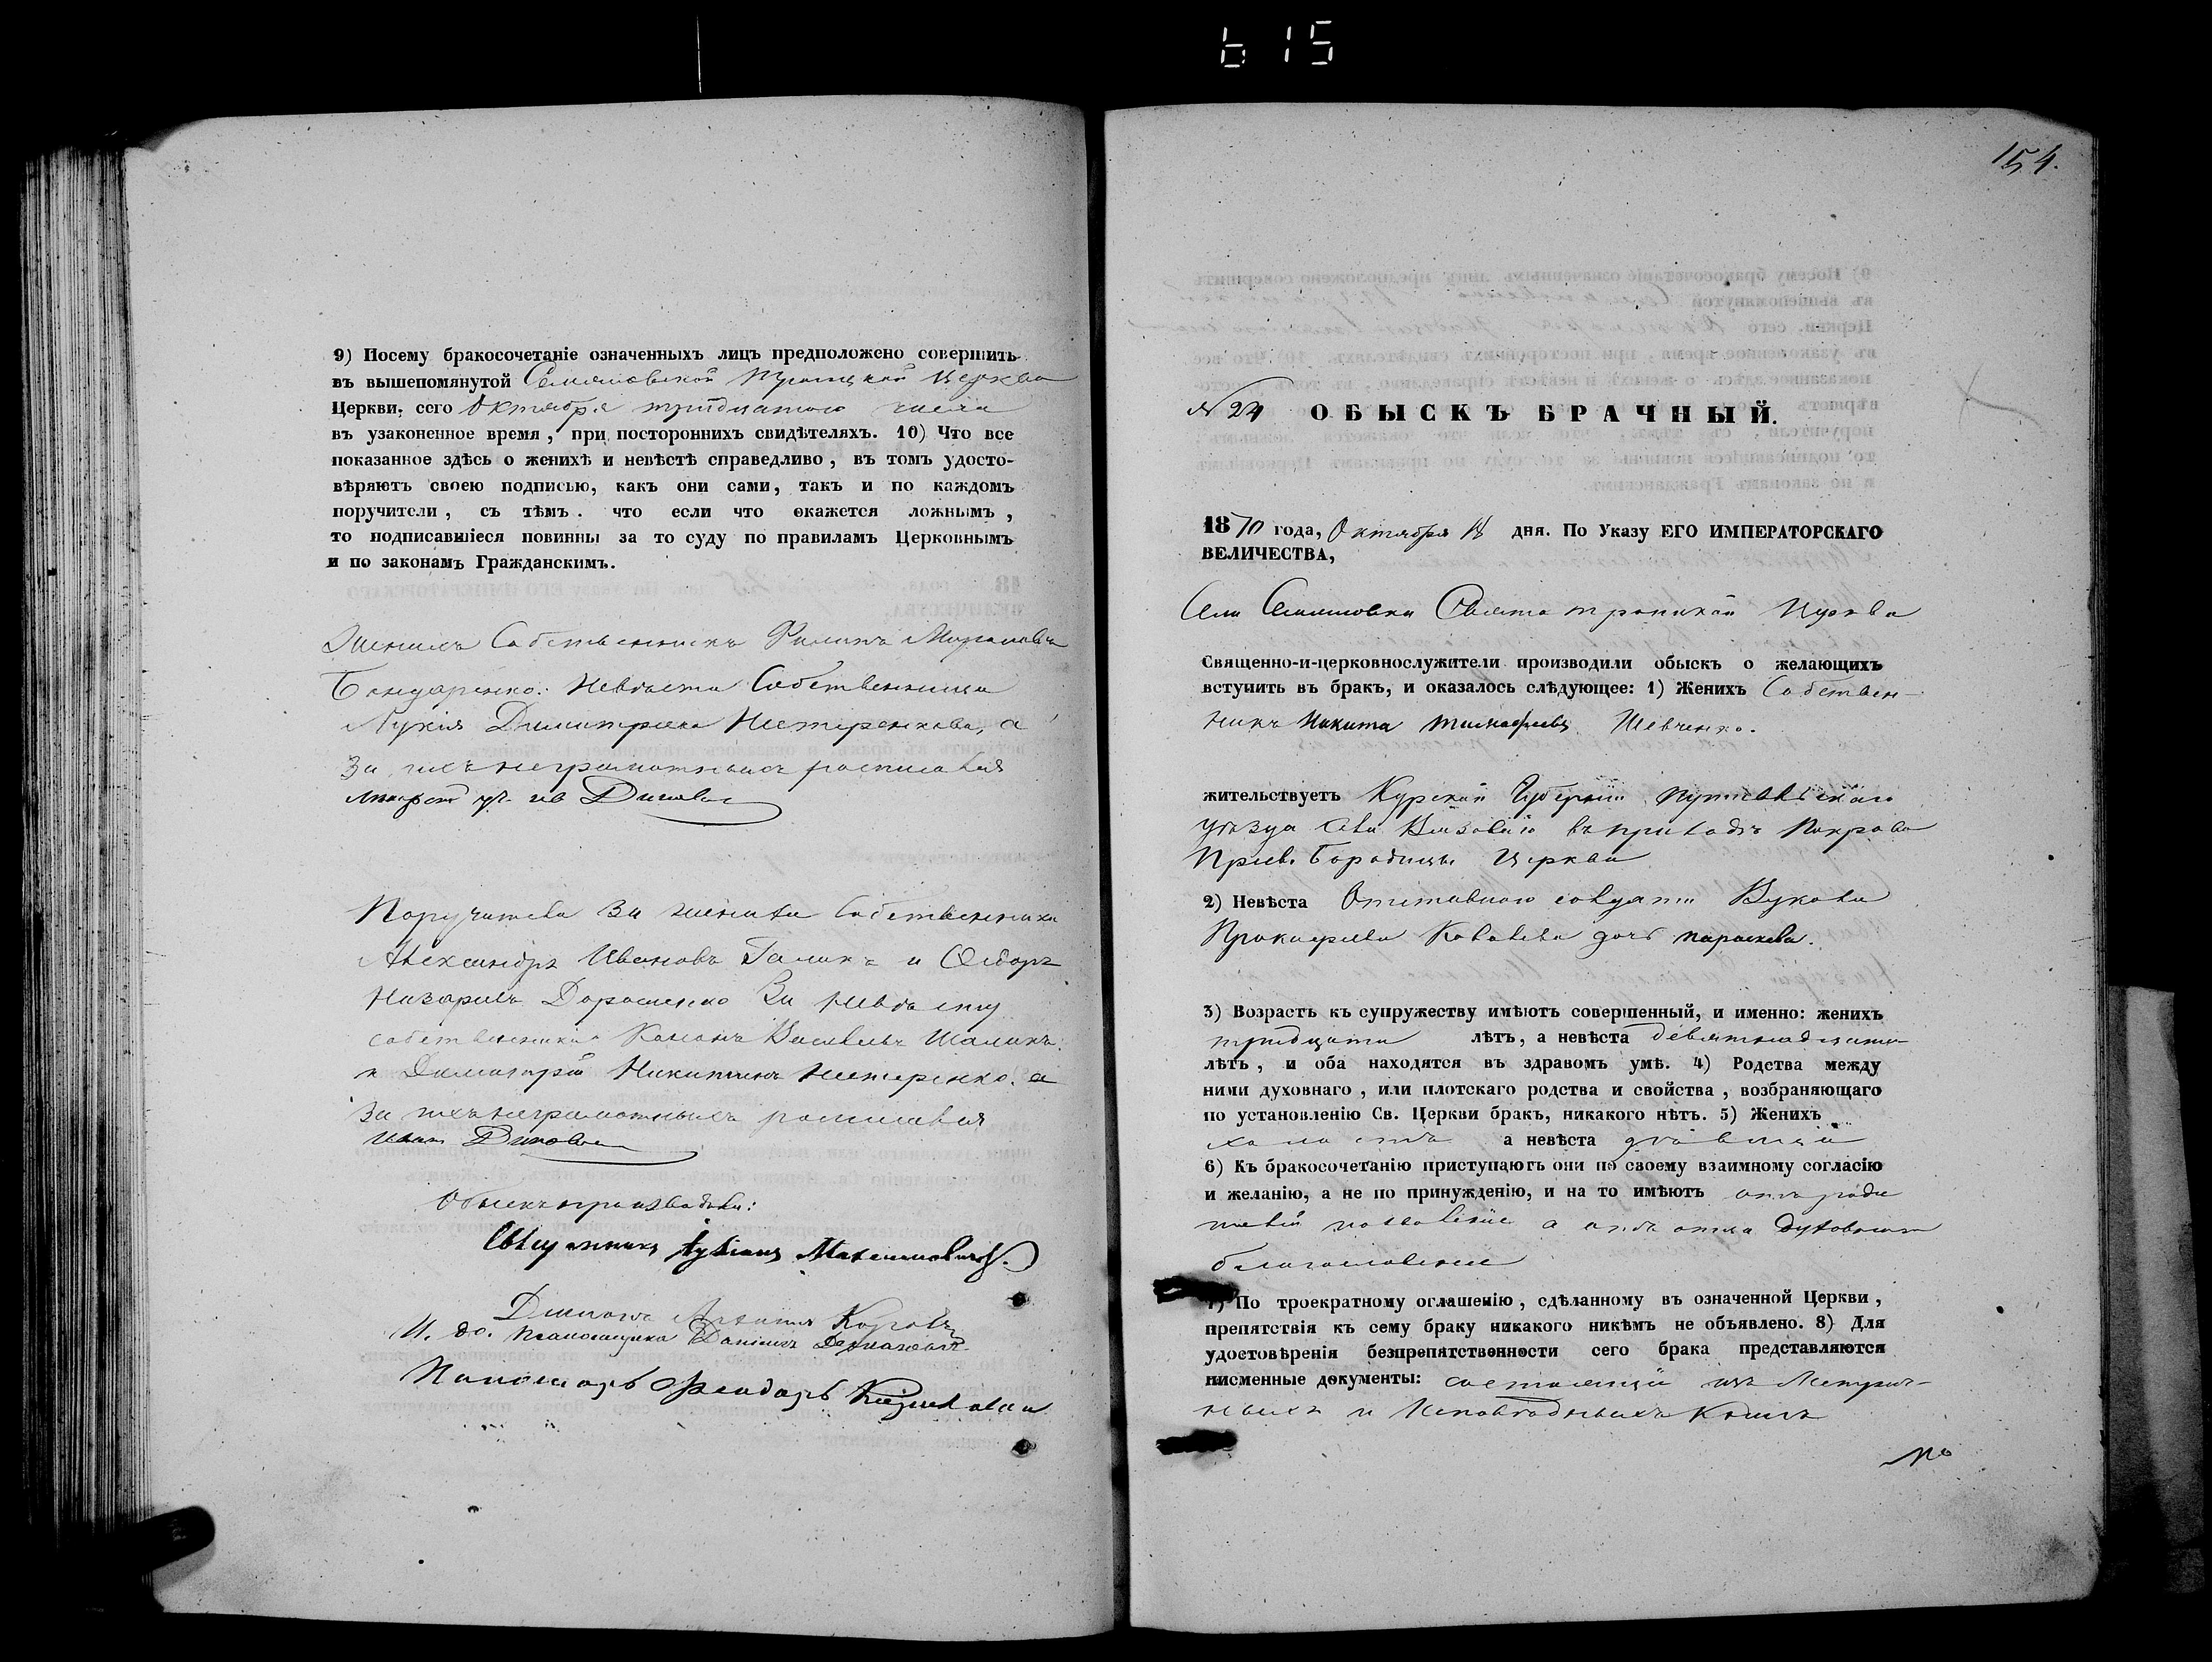 615
9) Посему бракосочетаніе означенныхъ лицъ предположено совершить
въ вышепомянутой Семяновской Троицкой Церкви
Церкви, сего Октября тридцатаго числа
въ узаконенное время, при постороннихъ свидѣтеляхъ. 10) Что все
показанное здѣсь о женихѣ и невѣстѣ справедливо, въ томъ удосто-
вѣряютъ своею подписью, какъ они сами, такъ и по каждомъ
поручители, съ тѣмъ. что если что окажется ложнымъ,
то подписавшіеся повинны за то суду по правиламъ Церковнымъ
и по законамъ Гражданскимъ.
Женихъ Собственникъ Филипъ
Бондаренко. Невѣста Собственница
Лукія Димитріева Нестеренкова, а
За ихъ неграмотныхъ росписался
Поручители за жениха Собственники
Александръ Ивановъ Галика и Ѳедоръ
Назарьевъ Дорошенко За невѣсту
собственники Василевъ Шаликъ
и Димитрій Никитинъ Нестеренко. а
За ихъ неграмотныхъ росписался
Обыскъ производили:
Священникъ Максимовичъ.
Діаконъ
И. до. Псаломщика Даніилъ
Пономарь Феодоръ
154.
№ 24 ОБЫСКЪ БРАЧНЫЙ.
1870 года, Октября 18 дня. По Указу ЕГО ИМПЕРАТОРСКАГО
ВЕЛИЧЕСТВА,
Села Семяновки Свято троицкой Церкви
Священно-и-церковнослужители производили обыскъ о желающихъ
вступить въ бракъ, и оказалось слѣдующее: 1) Женихъ Собствен-
никъ Никита Тимофеевъ Шевченко.
жительствуетъ Курской Губерніи Путивльскаго
уѣзда въ приходѣ Покрова
Пресв. Богородицы Церкви
2) Невѣста Отставного солдата
Прокофіева Ковалева дочь Параскева.
3) Возрастъ къ супружеству имѣютъ совершенный, и именно: женихъ
тридцати лѣтъ, а невѣста девятнадцати
лѣтъ, и оба находятся въ здравомъ умѣ. 4) Родства между
ними духовнаго, или плотскаго родства и свойства, возбраняющаго
по установленію Св. Церкви бракъ, никакого нѣтъ. 5) Женихъ
холостъ а невѣста дѣвица
6) Къ бракосочетанію приступаютъ они по своему взаимному согласію
и желанію, а не по принужденію, и на то имѣютъ отъ роди
телей позволеніе а отъ отца духовнаго
благословеніе
7) По троекратному оглашенію, сдѣланному въ означенной Церкви,
препятствія къ сему браку никакого никѣмъ не объявлено. 8) Для
удостовѣренія безпрепятственности сего брака представляются
письменные документы: состоящіи изъ Метрич-
ныхъ и Исповѣдныхъ Книгъ
По